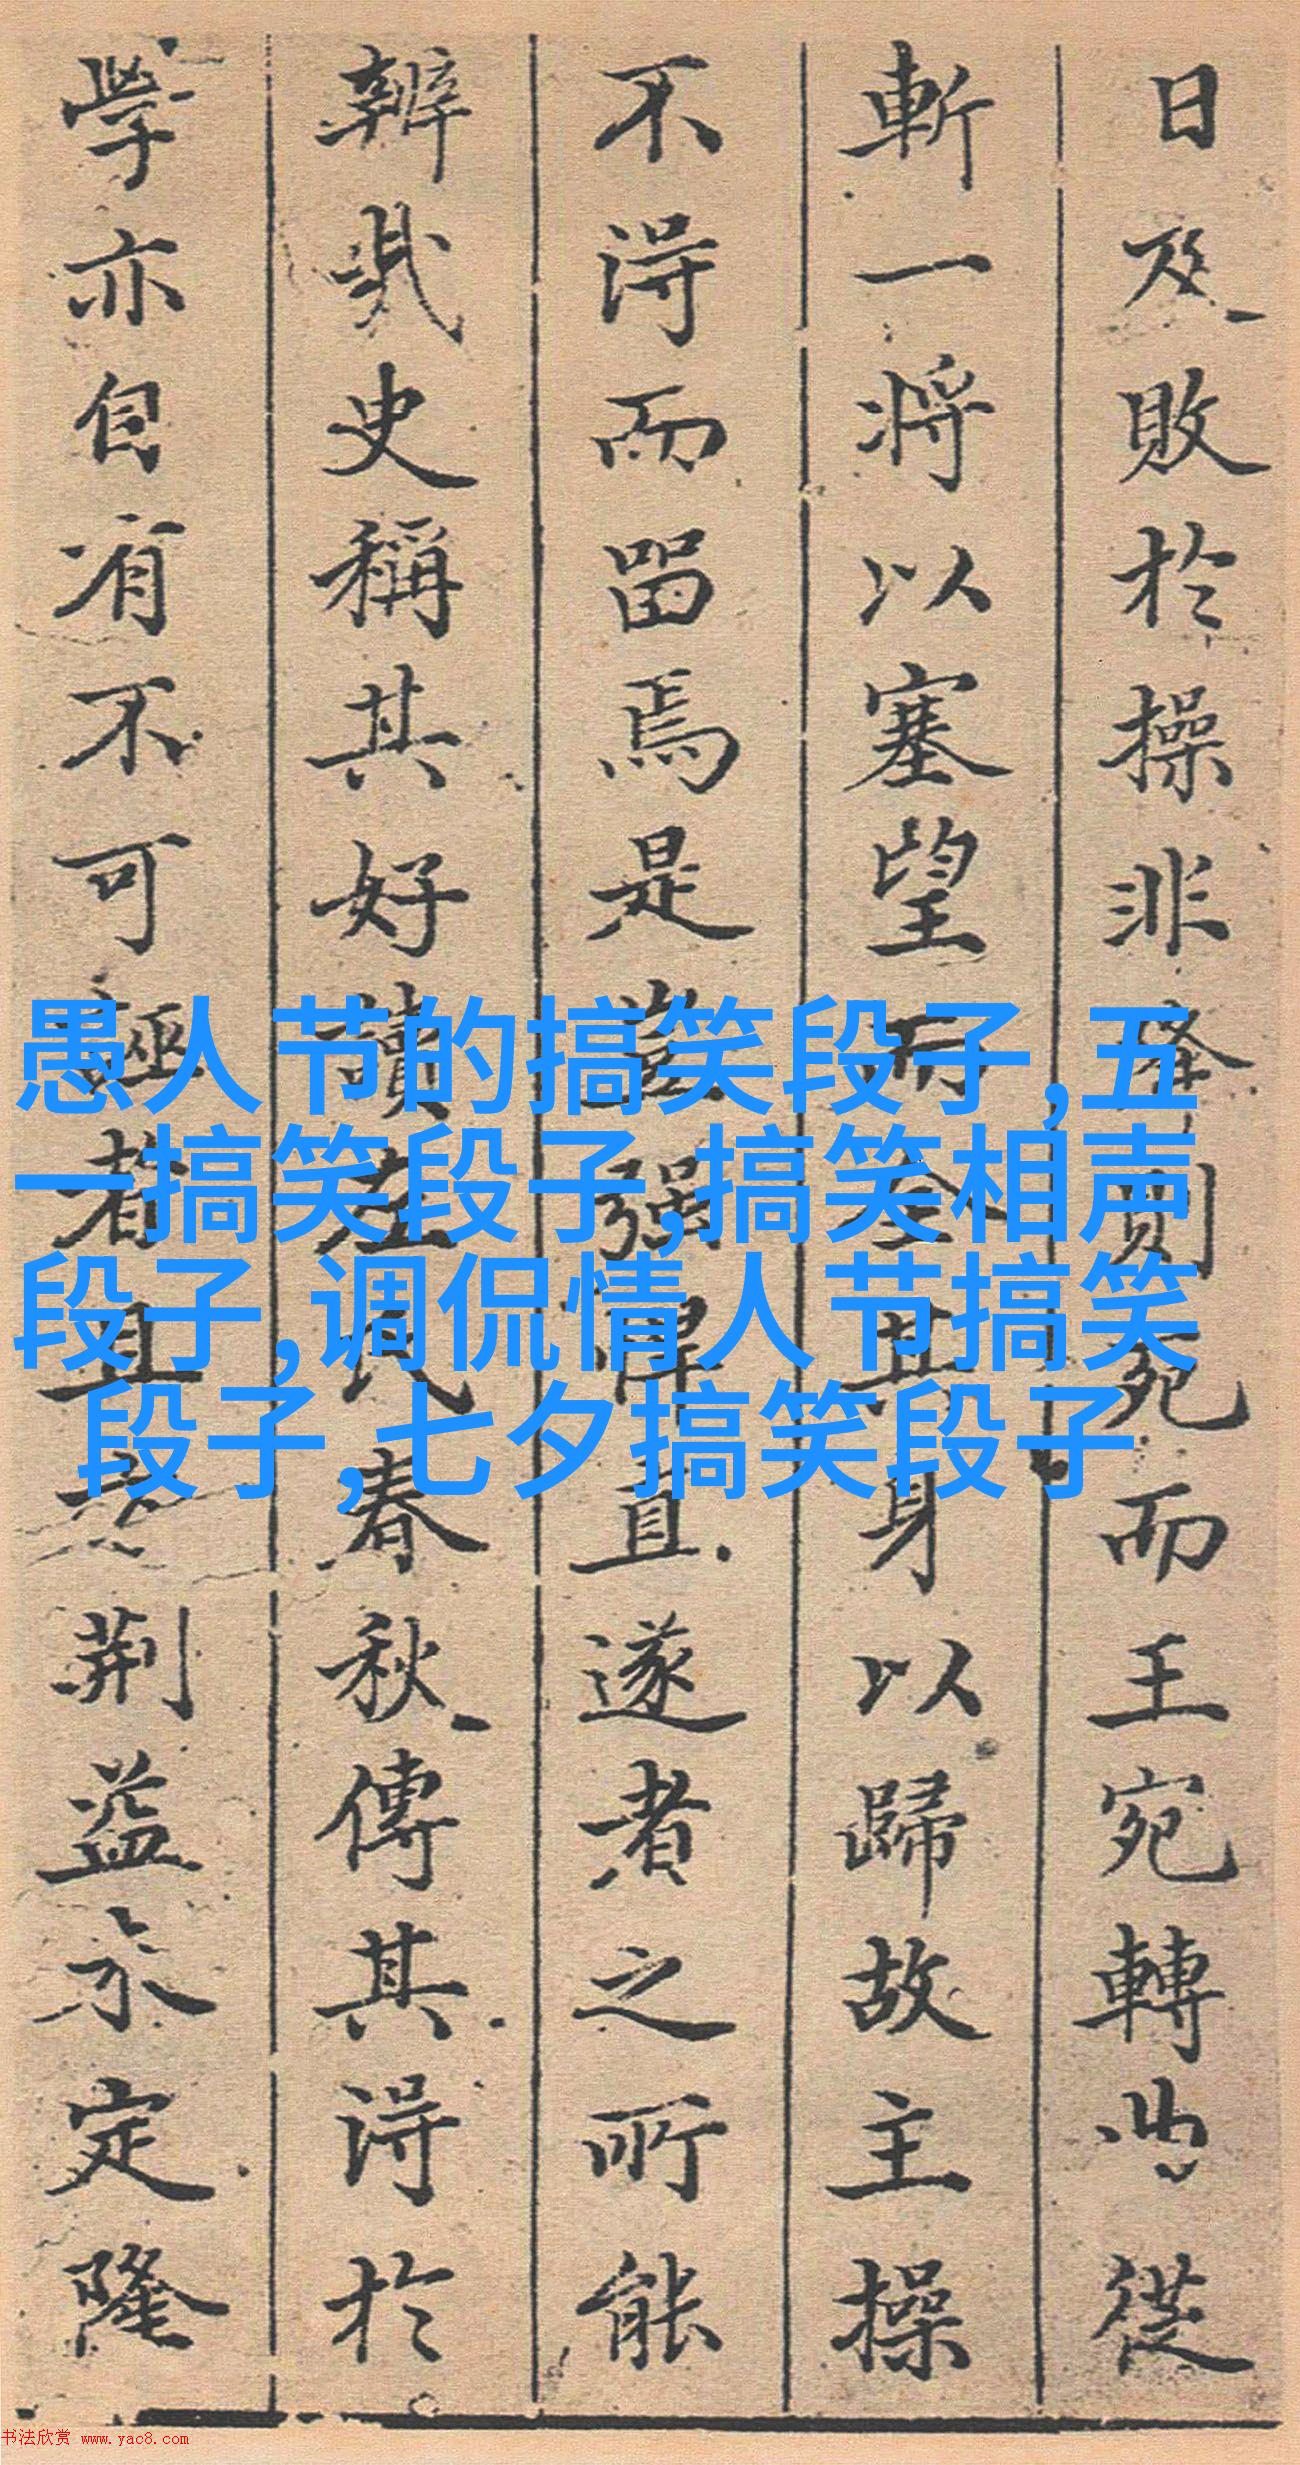 日及敗於操非降則死而王宛轉曲從
斬一將以塞望而全其身以歸故主操
不得而留焉是豈强悍直遂者之所能
辨哉史稱其好讀左氏春秋傳其得於
學亦自有不可誣者且考荆益未定隆
愚人节的搞笑段子,五
一搞笑段子,搞笑相声
段子,调侃情人节搞笑
段子,七夕搞笑段子
书法欣赏 www.yac8.com